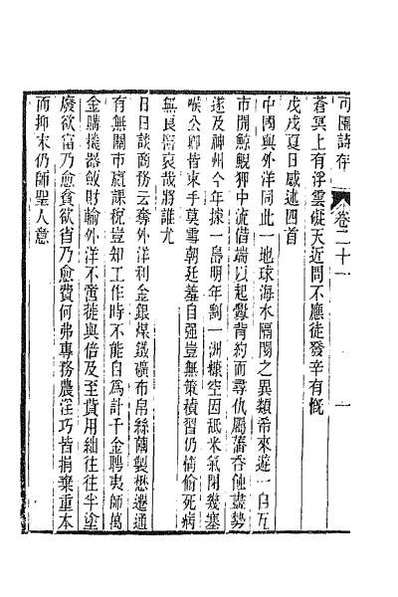 可園詩存 卷二十一 一
蒼冥上有浮雲礙天近問不應徒發辛有慨
戊戌夏日感述四首
中國與外洋同此一地球海水隔閡之異類希來遊一自互
市開鯨鯢狎中流借端以起釁背約而尋仇屬藩吞蝕盡勢
遂及神州今年據一島明年割一洲糠空因舐米氣閉幾塞
喉公卿皆束手莫雪朝廷羞自强豈無策積習仍偷死病
無良醫哀哉將誰尤
日日談商務云奪外洋利金銀煤鐵礦布帛絲繭製懋遷通
有無關市課稅豈知工作時不能自爲計千金聘夷師萬
金購機器斂財輸外洋不啻徙與倍及至貲用絀往往半塗
廢欲富乃愈貧欲省乃愈費何弗專務農淫巧皆捐棄重本
而抑末仍師聖人意